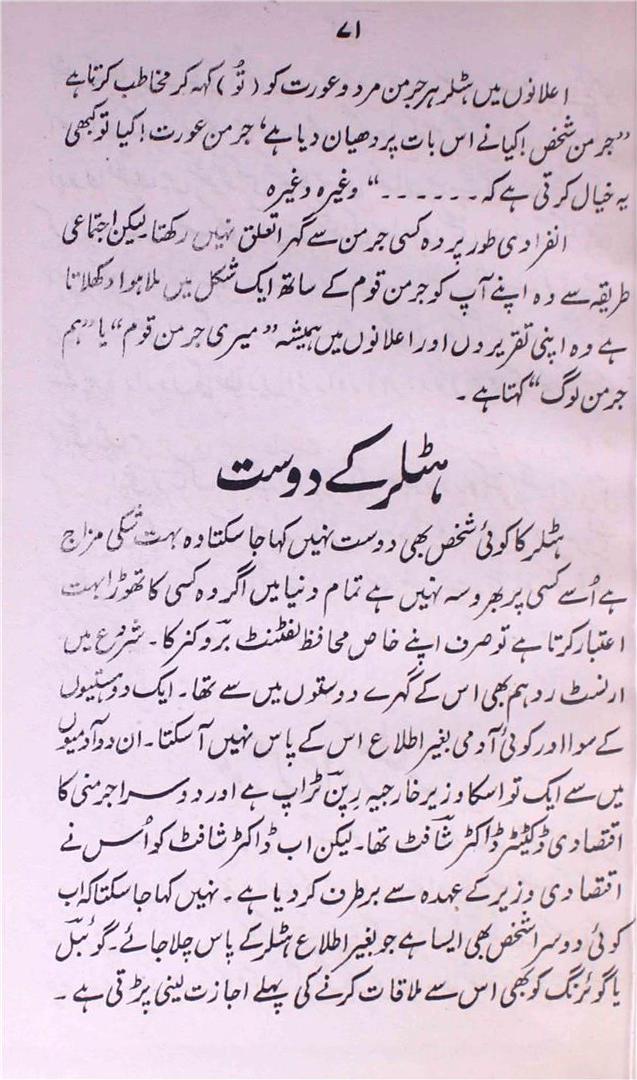 ۷۱
اعلانوں میں ہٹلر ہر جرمن مرد و عورت کو (تُو) کہہ کر مخاطب کرتا ہے
”جرمن شخص! کیا نے اس بات پر دھیان دیا ہے‘ جرمن عورت! کیا تو کبھی
یہ خیال کرتی ہے کہ ۔۔۔۔۔۔“ وغیرہ وغیرہ
انفرادی طور پر وہ کسی جرمن سے گہرا تعلق نہیں رکھتا لیکن اجتماعی
طریقہ سے وہ اپنے آپ کو جرمن قوم کے ساتھ ایک شکل میں ملا ہوا دکھلاتا
ہے وہ اپنی تقریروں اور اعلانوں میں ہمیشہ ”میری جرمن قوم“ یا ”ہم
جرمن لوگ“ کہتا ہے ۔
ہٹلر کے دوست
ہٹلر کا کوئی شخص بھی دوست نہیں کہا جا سکتا وہ بہت شکی مزاج
ہے اُسے کسی پر بھروسہ نہیں ہے تمام دنیا میں اگر وہ کسی کا تھوڑا بہت
اعتبار کرتا ہے تو صرف اپنے خاص محافظ لفٹنٹ بروکنر کا ۔ شروع میں
ارنسٹ روہم بھی اس کے گہرے دوستوں میں سے تھا ۔ ایک دو ہستیوں
کے سوا اور کوئی آدمی بغیر اطلاع اس کے پاس نہیں آ سکتا ۔ ان دو آدمیوں
میں سے ایک تو اسکا وزیر خارجیہ رپن ٹراپ ہے اور دوسرا جرمنی کا
اقتصادی ڈکٹیٹر ڈاکٹر شافٹ تھا ۔ لیکن اب ڈاکٹر شافٹ کو اُس نے
اقتصادی وزیر کے عہدہ سے برطرف کر دیا ہے ۔ نہیں کہا جا سکتا کہ اب
کوئی دوسرا شخص بھی ایسا ہے جو بغیر اطلاع ہٹلر کے پاس چلا جائے ۔ گوئبل
یا گوئرنگ کو بھی اس سے ملاقات کرنے کی پہلے اجازت لینی پڑتی ہے ۔